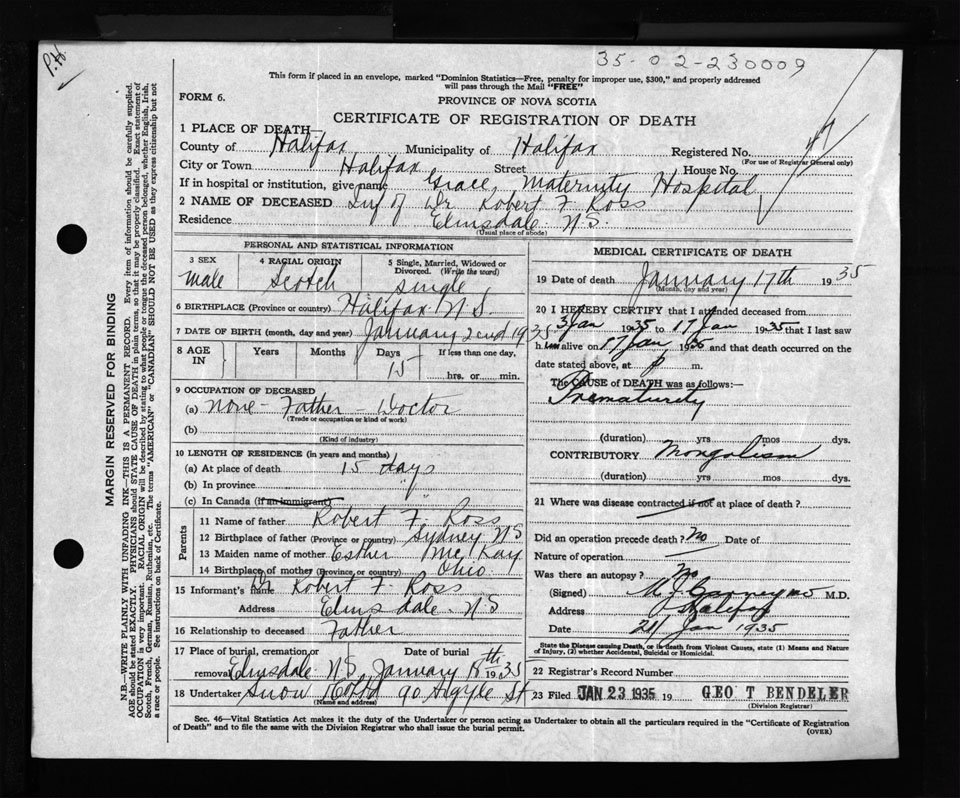 P.H.
35-02-230009
This form if placed in an envelope, marked "Dominion Statistics—Free, penalty for improper use, $300," and properly addressed
will pass through the Mail "FREE"
FORM 6.
PROVINCE OF NOVA SCOTIA
CERTIFICATE OF REGISTRATION OF DEATH
1 PLACE OF DEATH—
County of Halifax Municipality of Halifax Registered No. 47
(For use of Registrar General only)
City or Town Halifax Street House No.
If in hospital or institution, give name Grace, Maternity Hospital
2 NAME OF DECEASED Inf of Dr Robert F Ross
Residence Elmsdale N.S.
(Usual place of abode)
PERSONAL AND STATISTICAL INFORMATION
3 SEX 4 RACIAL ORIGIN 5 Single, Married, Widowed or
Divorced. (Write the word)
male Scotch single
6 BIRTHPLACE (Province or country) Halifax N.S.
7 DATE OF BIRTH (month, day and year) January 2nd 1935
8 AGE IN Years Months Days If less than one day,
15 hrs. or min.
9 OCCUPATION OF DECEASED
(a) none - Father - Doctor
(Trade or occupation or kind of work)
(b)
(Kind of industry)
10 LENGTH OF RESIDENCE (in years and months)
(a) At place of death 15 days
(b) In province "
(c) In Canada (if an immigrant)
Parents
11 Name of father Robert F. Ross
12 Birthplace of father (Province or country) Sydney N S
13 Maiden name of mother Esther McKay
14 Birthplace of mother (Province or country) Ohio
15 Informant's name Dr Robert F Ross
Address Elmsdale N.S
16 Relationship to deceased Father
17 Place of burial, cremation or removal Date of burial
Elmsdale N.S. January 18th 1935
18 Undertaker Snow & Co Ltd 90 Argyle St
(Name and address)
MEDICAL CERTIFICATE OF DEATH
19 Date of death January 17th 1935
(Month, day and year)
20 I HEREBY CERTIFY that I attended deceased from
3 Jan 1935 to 17 Jan 1935 that I last saw
h alive on 17 Jan 1935 and that death occurred on the
date stated above, at m.
The CAUSE of DEATH was as follows:—
Prematurity
(duration) yrs mos dys.
CONTRIBUTORY Mongolism
(duration) yrs mos dys.
21 Where was disease contracted if not at place of death?
Did an operation precede death? No Date of
Nature of operation
Was there an autopsy? No
(Signed) M. J. Carney MD M.D.
Address Halifax
Date 21 Jan 1935
State the Disease causing Death, or in deaths from Violent Causes, state (1) Means and Nature
of Injury, (2) whether Accidental, Suicidal or Homicidal.
22 Registrar's Record Number
23 Filed JAN 23 1935 19 GEO T BENDELER
(Division Registrar)
Sec. 46—Vital Statistics Act makes it the duty of the Undertaker or person acting as Undertaker to obtain all the particulars required in the "Certificate of Registration
of Death" and to file the same with the Division Registrar who shall issue the burial permit.
(OVER)
MARGIN RESERVED FOR BINDING
N.B.—WRITE PLAINLY WITH UNFADING INK—THIS IS A PERMANENT RECORD. Every item of information should be carefully supplied.
AGE should be stated EXACTLY. PHYSICIANS should STATE CAUSE OF DEATH in plain terms, so that it may be properly classified. Exact statement of
OCCUPATION is very important. RACIAL ORIGIN will be described by stating to what people or tongue the deceased person belonged, whether English, Irish,
Scotch, French, German, Russian, Ruthenian, etc. The terms "AMERICAN" or "CANADIAN" SHOULD NOT BE USED as they express citizenship but not
a race or people. See instructions on back of Certificate.